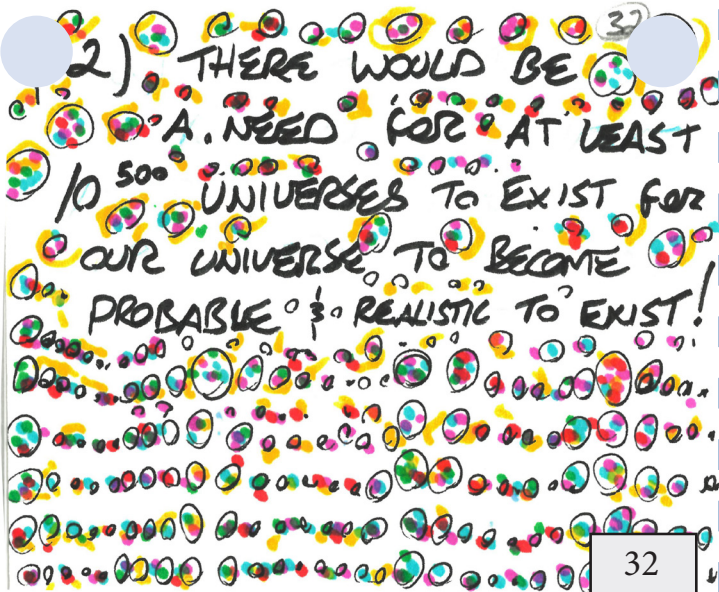 32
2) THERE WOULD BE
A NEED FOR AT LEAST
10^500 UNIVERSES TO EXIST FOR
OUR UNIVERSE TO BECOME
PROBABLE & REALISTIC TO EXIST!
32